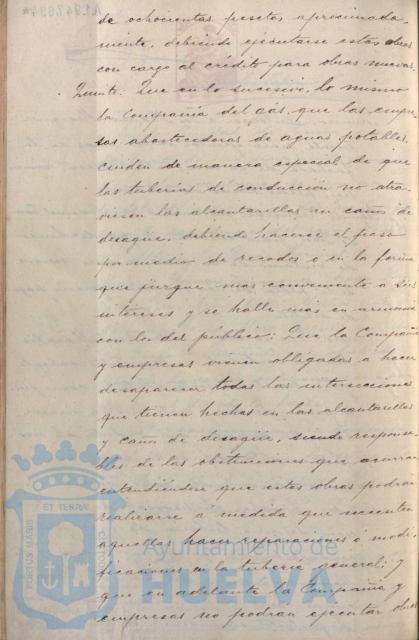 de ochocientas pesetas aproximada
mente, debiendo ejecutarse estas obras
con cargo al crédito para obras nuevas.
Quinto. Que en lo sucesivo, lo mismo
la Compañía del gas, que las empre
sas abastecedoras de aguas potables,
cuiden de manera especial de que
las tuberías de conducción no atra
viesen las alcantarillas ni caños de
desagüe, debiendo hacerse el paso
por medio de recodos ó en la forma
que juzgue mas conveniente á sus
intereses y se halle más en armonía
con los del público; Que la Compañía
y empresas vienen obligadas a hacer
desaparecer todas las intersecciones
que tienen hechas en las alcantarillas
y caños de desagüe, siendo responsa
bles de las obstrucciones que ocurran
entendiéndose que estas obras podrán
realizarse a medida que necesiten
aquellas hacer reparaciones ó modi
ficaciones en la tubería general; y
que en adelante la Compañía y
empresas no podrán ejecutar obras
PORTUS MARIS
ET TERRAE
Ayuntamiento de
HUELVA